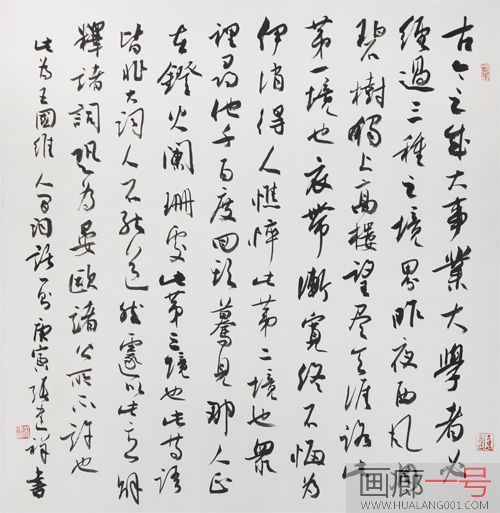 古今之成大事業大學者必
經過三種之境界昨夜西風凋
碧樹獨上高樓望盡天涯路此
第一境也衣帶漸寬終不悔為
伊消得人憔悴此第二境也眾
裡尋他千百度回頭驀見那人正
在鐙火闌珊處此第三境也此等語
皆非大詞人不能道然遽以此意解
釋諸詞恐為晏歐諸公所不許也
此為王國維人间词話 庚寅張 祥書
画廊一号
WWW.HUALANG001.COM